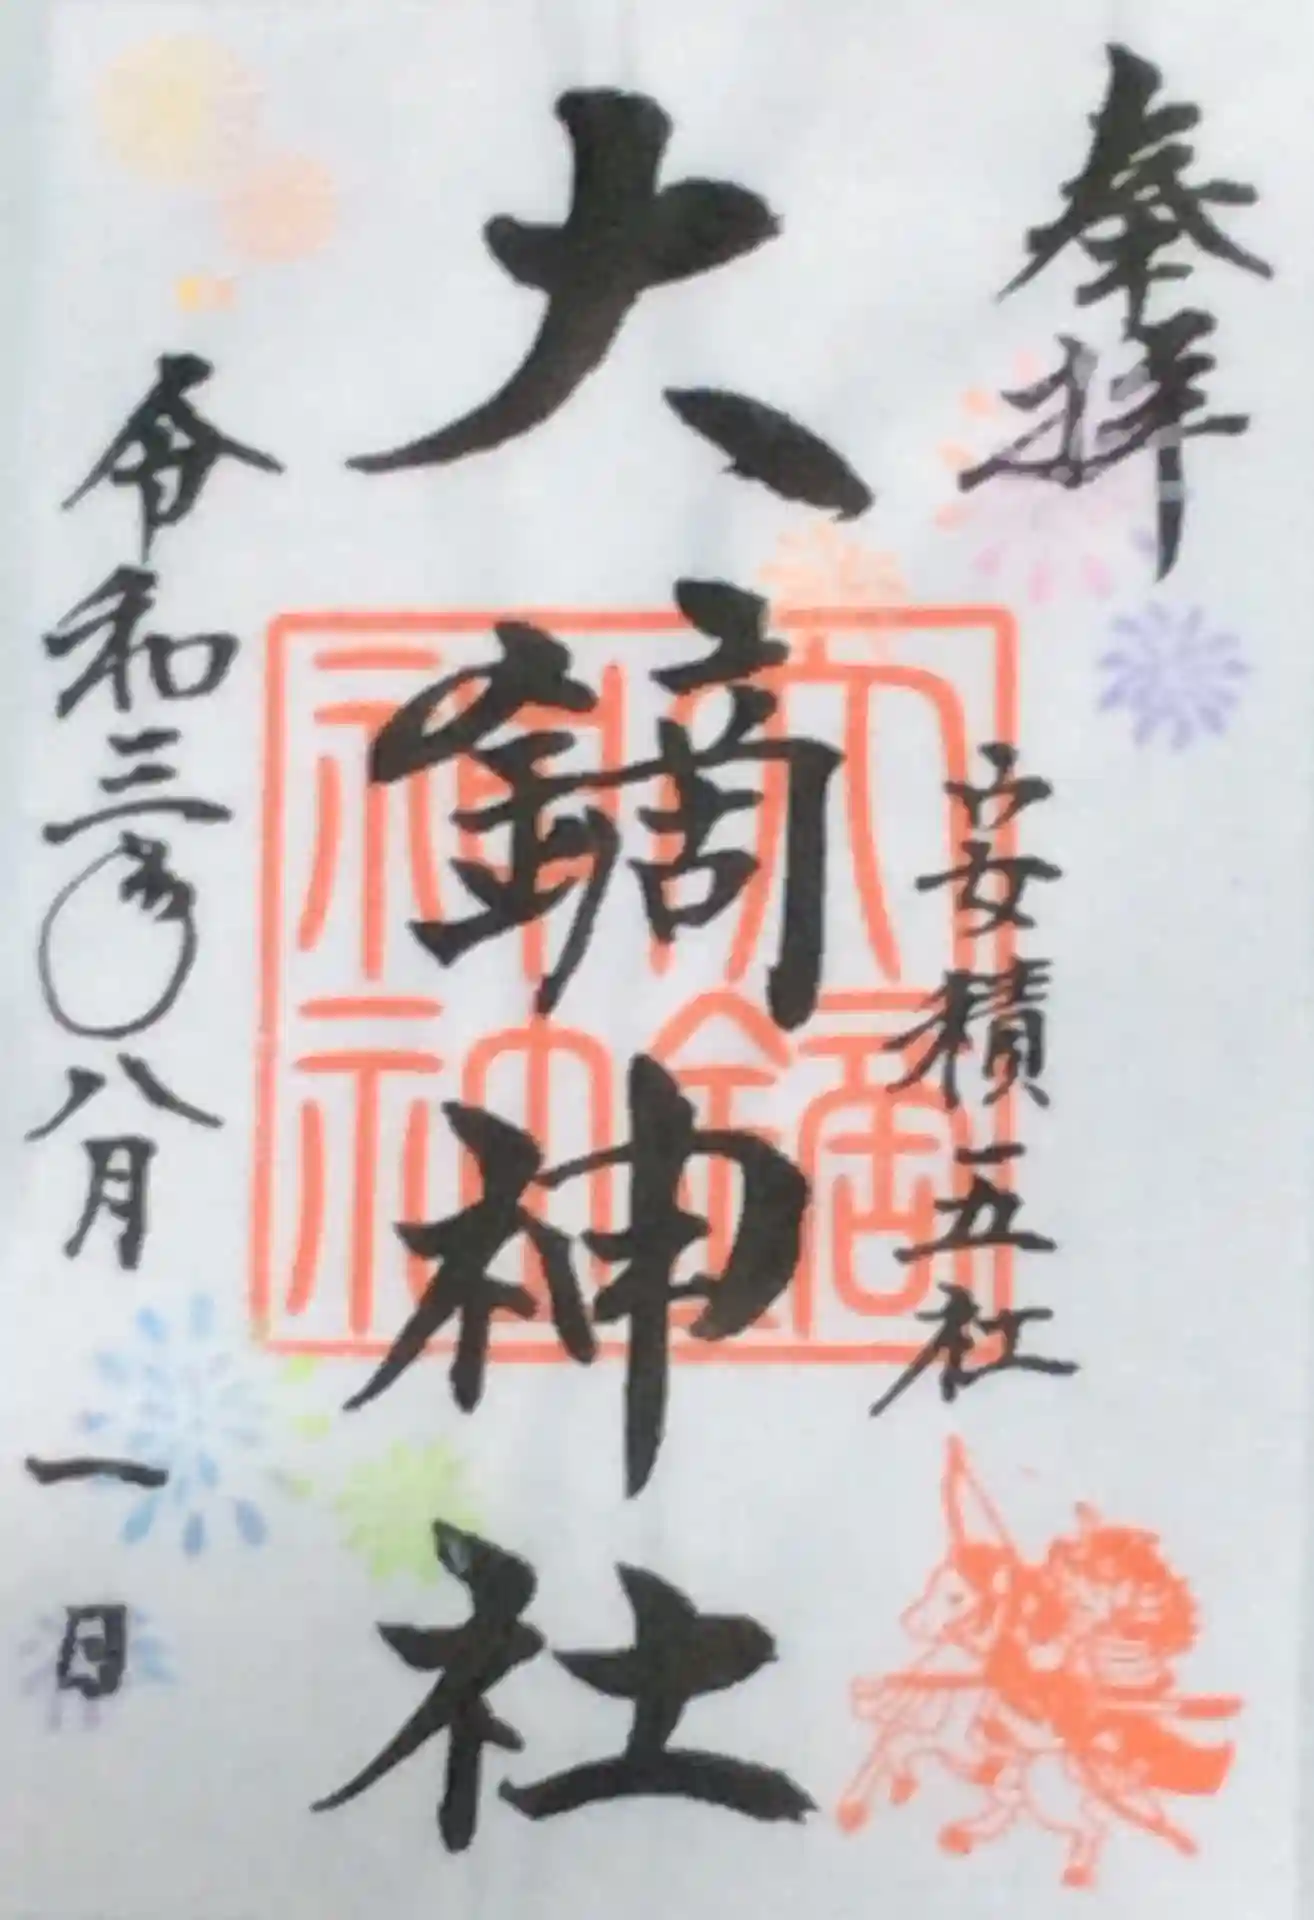 奉拝
安積一五社
大鏑神社
大鏑
神社
令和三年八月一日